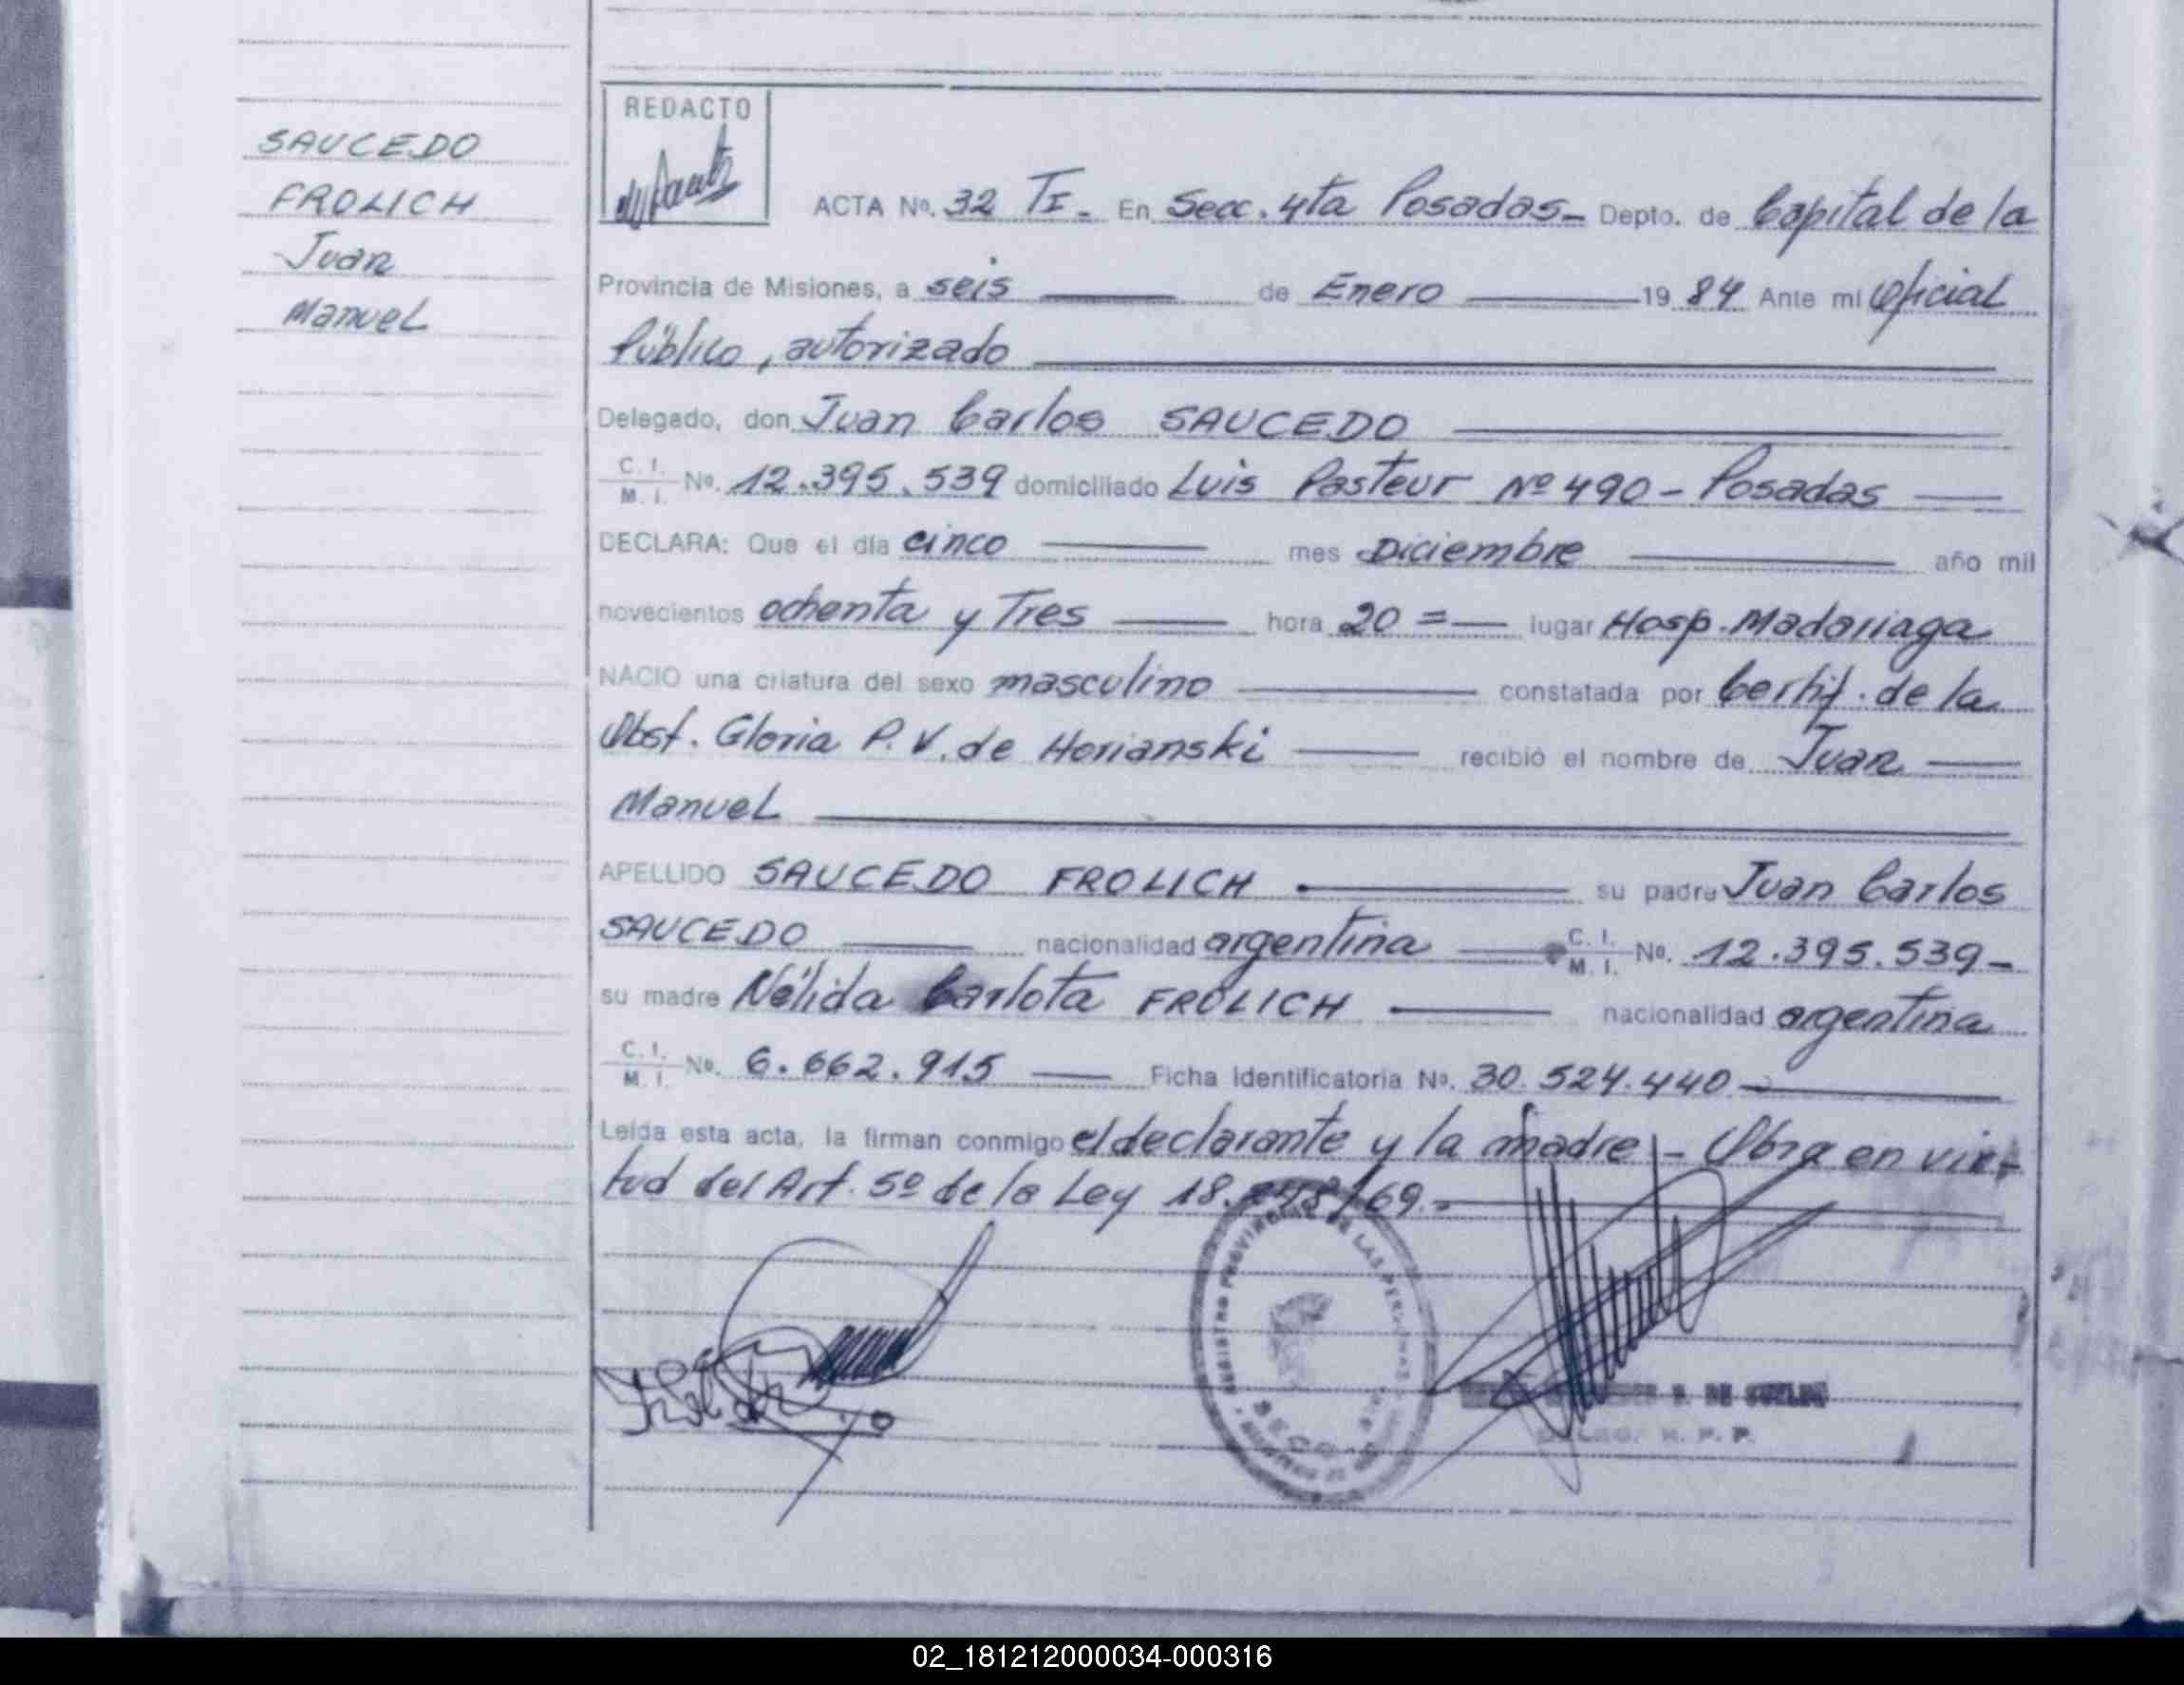 SAUCEDO
FROLICH
Juan
Manuel
REDACTO
ACTA Nº. 32 TI - En Secc. 4ta Posadas - Depto. de Capital de la
Provincia de Misiones, a seis de Enero 19 84 Ante mi Oficial
Público, autorizado
Delegado, don Juan Carlos SAUCEDO
C. I.
M. I. Nº. 12.395.539 domiciliado Luis Pasteur Nº 490 - Posadas
DECLARA: Que el día cinco mes Diciembre año mil
novecientos ochenta y Tres hora 20 = lugar Hosp. Madariaga
NACIO una criatura del sexo masculino constatada por Certif. de la
Obst. Gloria P. V. de Horianski recibió el nombre de Juan
Manuel
APELLIDO SAUCEDO FROLICH su padre Juan Carlos
SAUCEDO nacionalidad argentina C. I.
M. I. Nº. 12.395.539 -
su madre Nélida Carlota FROLICH nacionalidad argentina
C. I.
M. I. Nº. 6.662.915 Ficha Identificatoria Nº. 30.524.440
Leída esta acta, la firman conmigo el declarante y la madre - Obra en vir-
tud del Art. 5º de la Ley 18. /69.-
REGISTRO PROVINCIAL DE LAS PERSONAS
DE SUELDO
R. P. P.
02_181212000034-000316